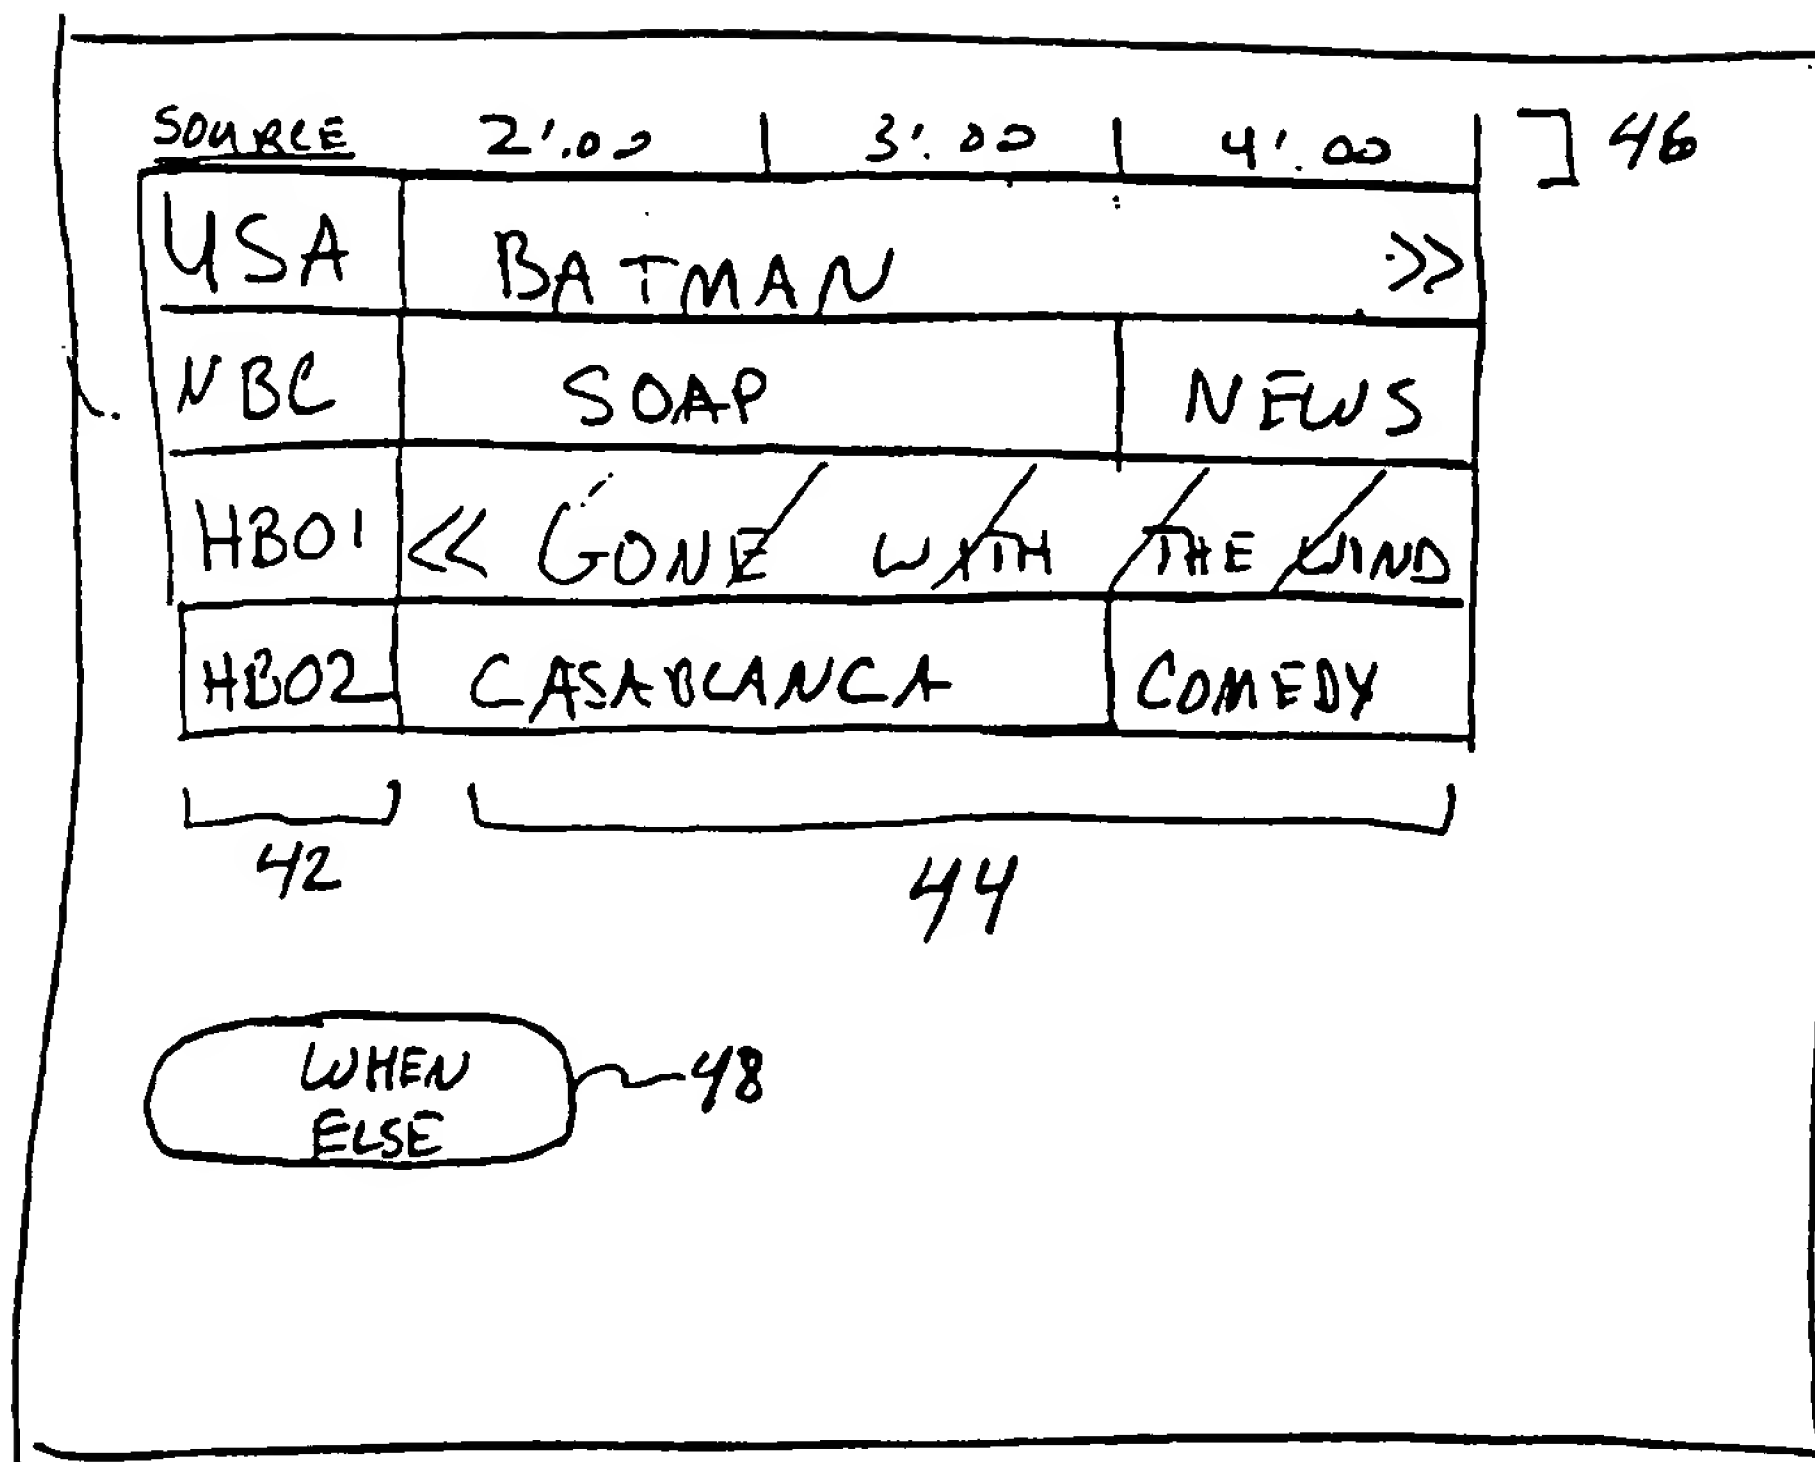 SOURCE 2:00 | 3:00 | 4:00 46
USA BATMAN >>
NBC SOAP NEWS
HBO1 << GONE WITH THE WIND
HBO2 CASABLANCA COMEDY
42 44
WHEN 48
ELSE